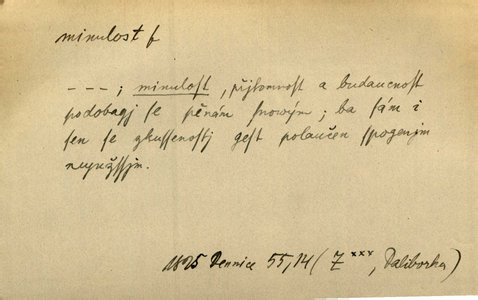 minulost f
– – – ; minulost, přjtomnost a budaucnost
podobagj se pěnám snowým ; ba sám i
sen se zkussenostj gest polaučen spogenjm
neyužssjm.
1825 Dennice 55,14 ( Z xxx, Daliborka )